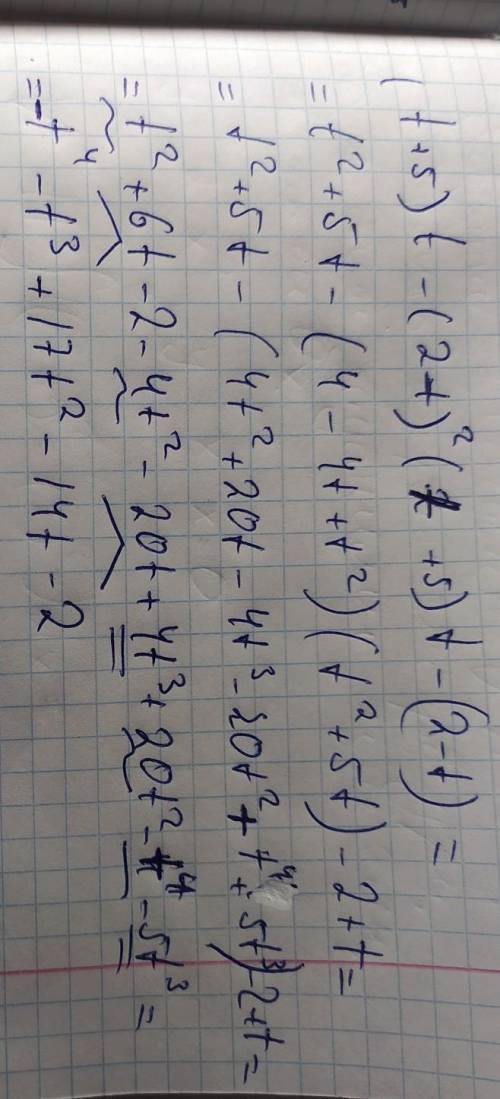 (t+5)t-(2-t)²(t+5)t-(2-t)=
=t²+5t-(4-4t+t²)(t²+5t)-2+t=
=t²+5t-(4t²+20t-4t³-20t²+t⁴+5t³)-2+t=
=t²+6t-2-4t²-20t+4t³+20t²-t⁴-5t³=
=-t⁴-t³+17t²-14t-2